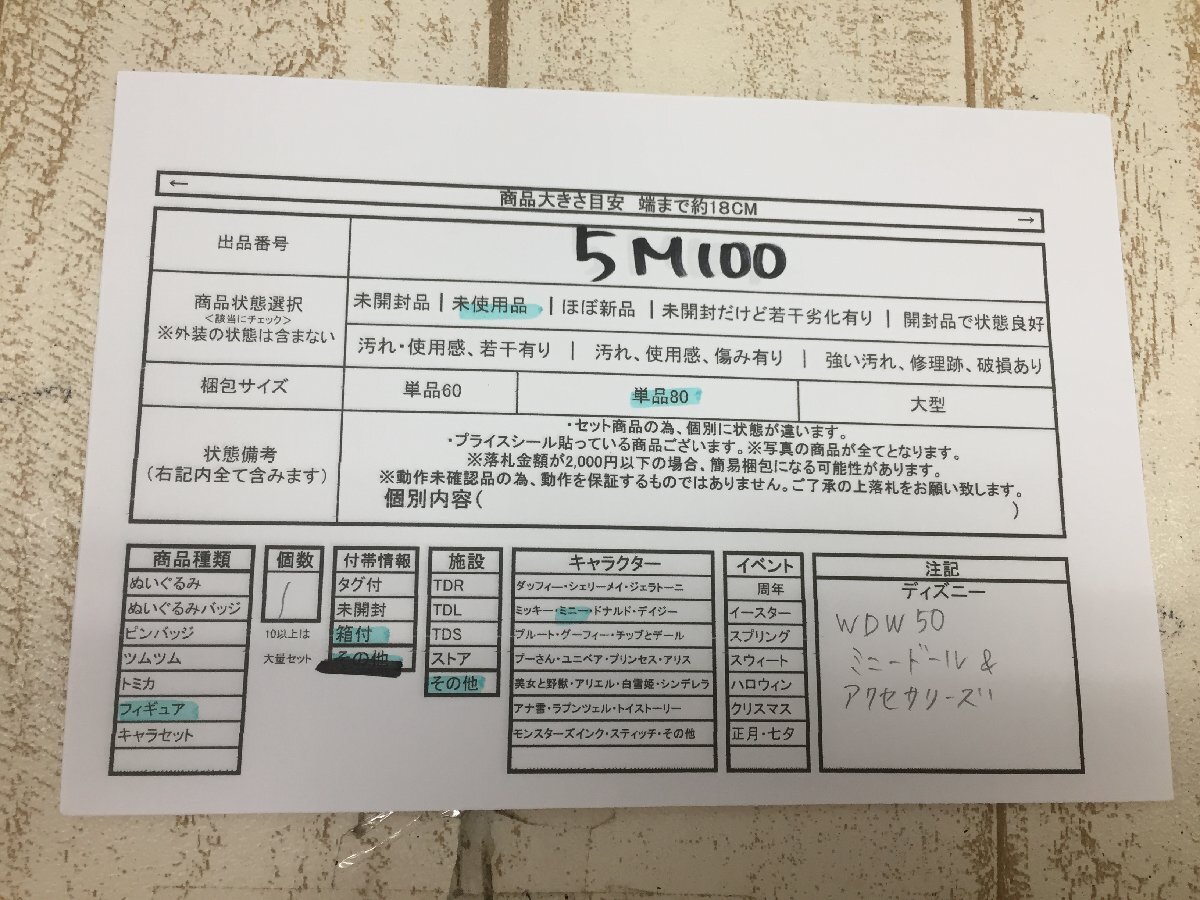 ←
商品大きさ目安 端まで約18CM
→
出品番号
5M100
商品状態選択
<該当にチェック>
※外装の状態は含まない
未開封品 | 未使用品 | ほぼ新品 | 未開封だけど若干劣化有り | 開封品で状態良好
汚れ・使用感、若干有り | 汚れ、使用感、傷み有り | 強い汚れ、修理跡、破損あり
梱包サイズ
単品60
単品80
大型
状態備考
(右記内全て含みます)
・セット商品の為、個別に状態が違います。
・プライスシール貼っている商品ございます。※写真の商品が全てとなります。
※落札金額が2,000円以下の場合、簡易梱包になる可能性があります。
※動作未確認品の為、動作を保証するものではありません。ご了承の上落札をお願い致します。
個別内容( )
商品種類
ぬいぐるみ
ぬいぐるみバッジ
ピンバッジ
ツムツム
トミカ
フィギュア
キャラセット
個数
1
10以上は
大量セット
付帯情報
タグ付
未開封
箱付
その他
施設
TDR
TDL
TDS
ストア
その他
キャラクター
ダッフィー・シェリーメイ・ジェラトーニ
ミッキー・ミニー・ドナルド・デイジー
プルート・グーフィー・チップとデール
プーさん・ユニベア・プリンセス・アリス
美女と野獣・アリエル・白雪姫・シンデレラ
アナ雪・ラプンツェル・トイストーリー
モンスターズインク・スティッチ・その他
イベント
周年
イースター
スプリング
スウィート
ハロウィン
クリスマス
正月・七夕
注記
ディズニー
WDW50
ミニードール&
アクセサリーズ